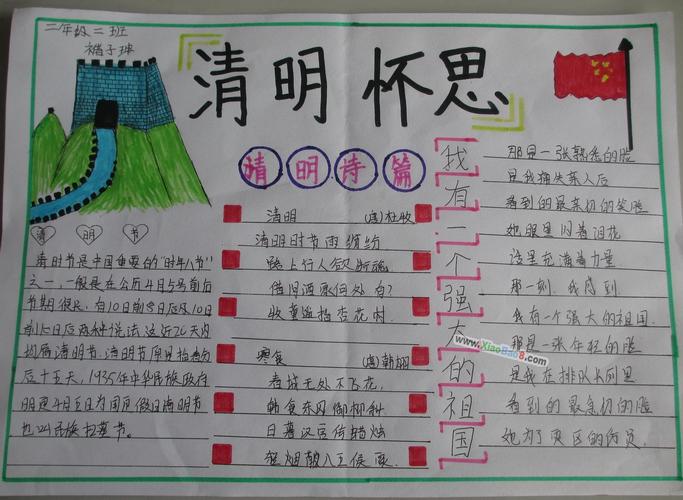 二年级二班
清明怀思
清明诗篇
清明节
清明节是中国重要的“时年八节”
之一,一般是在公历4月5号前后
节期很长,有10日前8日后及10日
前10日后两种说法,这近20天内
均属清明节。清明节原是指春分
后十五天,1935年中华民族政府
明定4月5日为国定假日清明节
也叫民族扫墓节。
清明 (唐)杜牧
清明时节雨纷纷
路上行人欲断魂
借问酒家何处有?
牧童遥指杏花村.
寒食 (唐)韩翃
春城无处不飞花,
寒食东风御柳斜
日暮汉宫传蜡烛
轻烟散入五侯家.
我有一个强大的祖国
那是一张熟悉的脸
是我痛失亲人后
看到的最亲切的笑脸
她眼里闪着泪花
这里充满着力量
那一刻,我感到
我有个强大的祖国.
那是一张年轻的脸
是我在排队长间里
看到的最亲切的脸
她为了灾区的伤员
www.XiaoBao8.com